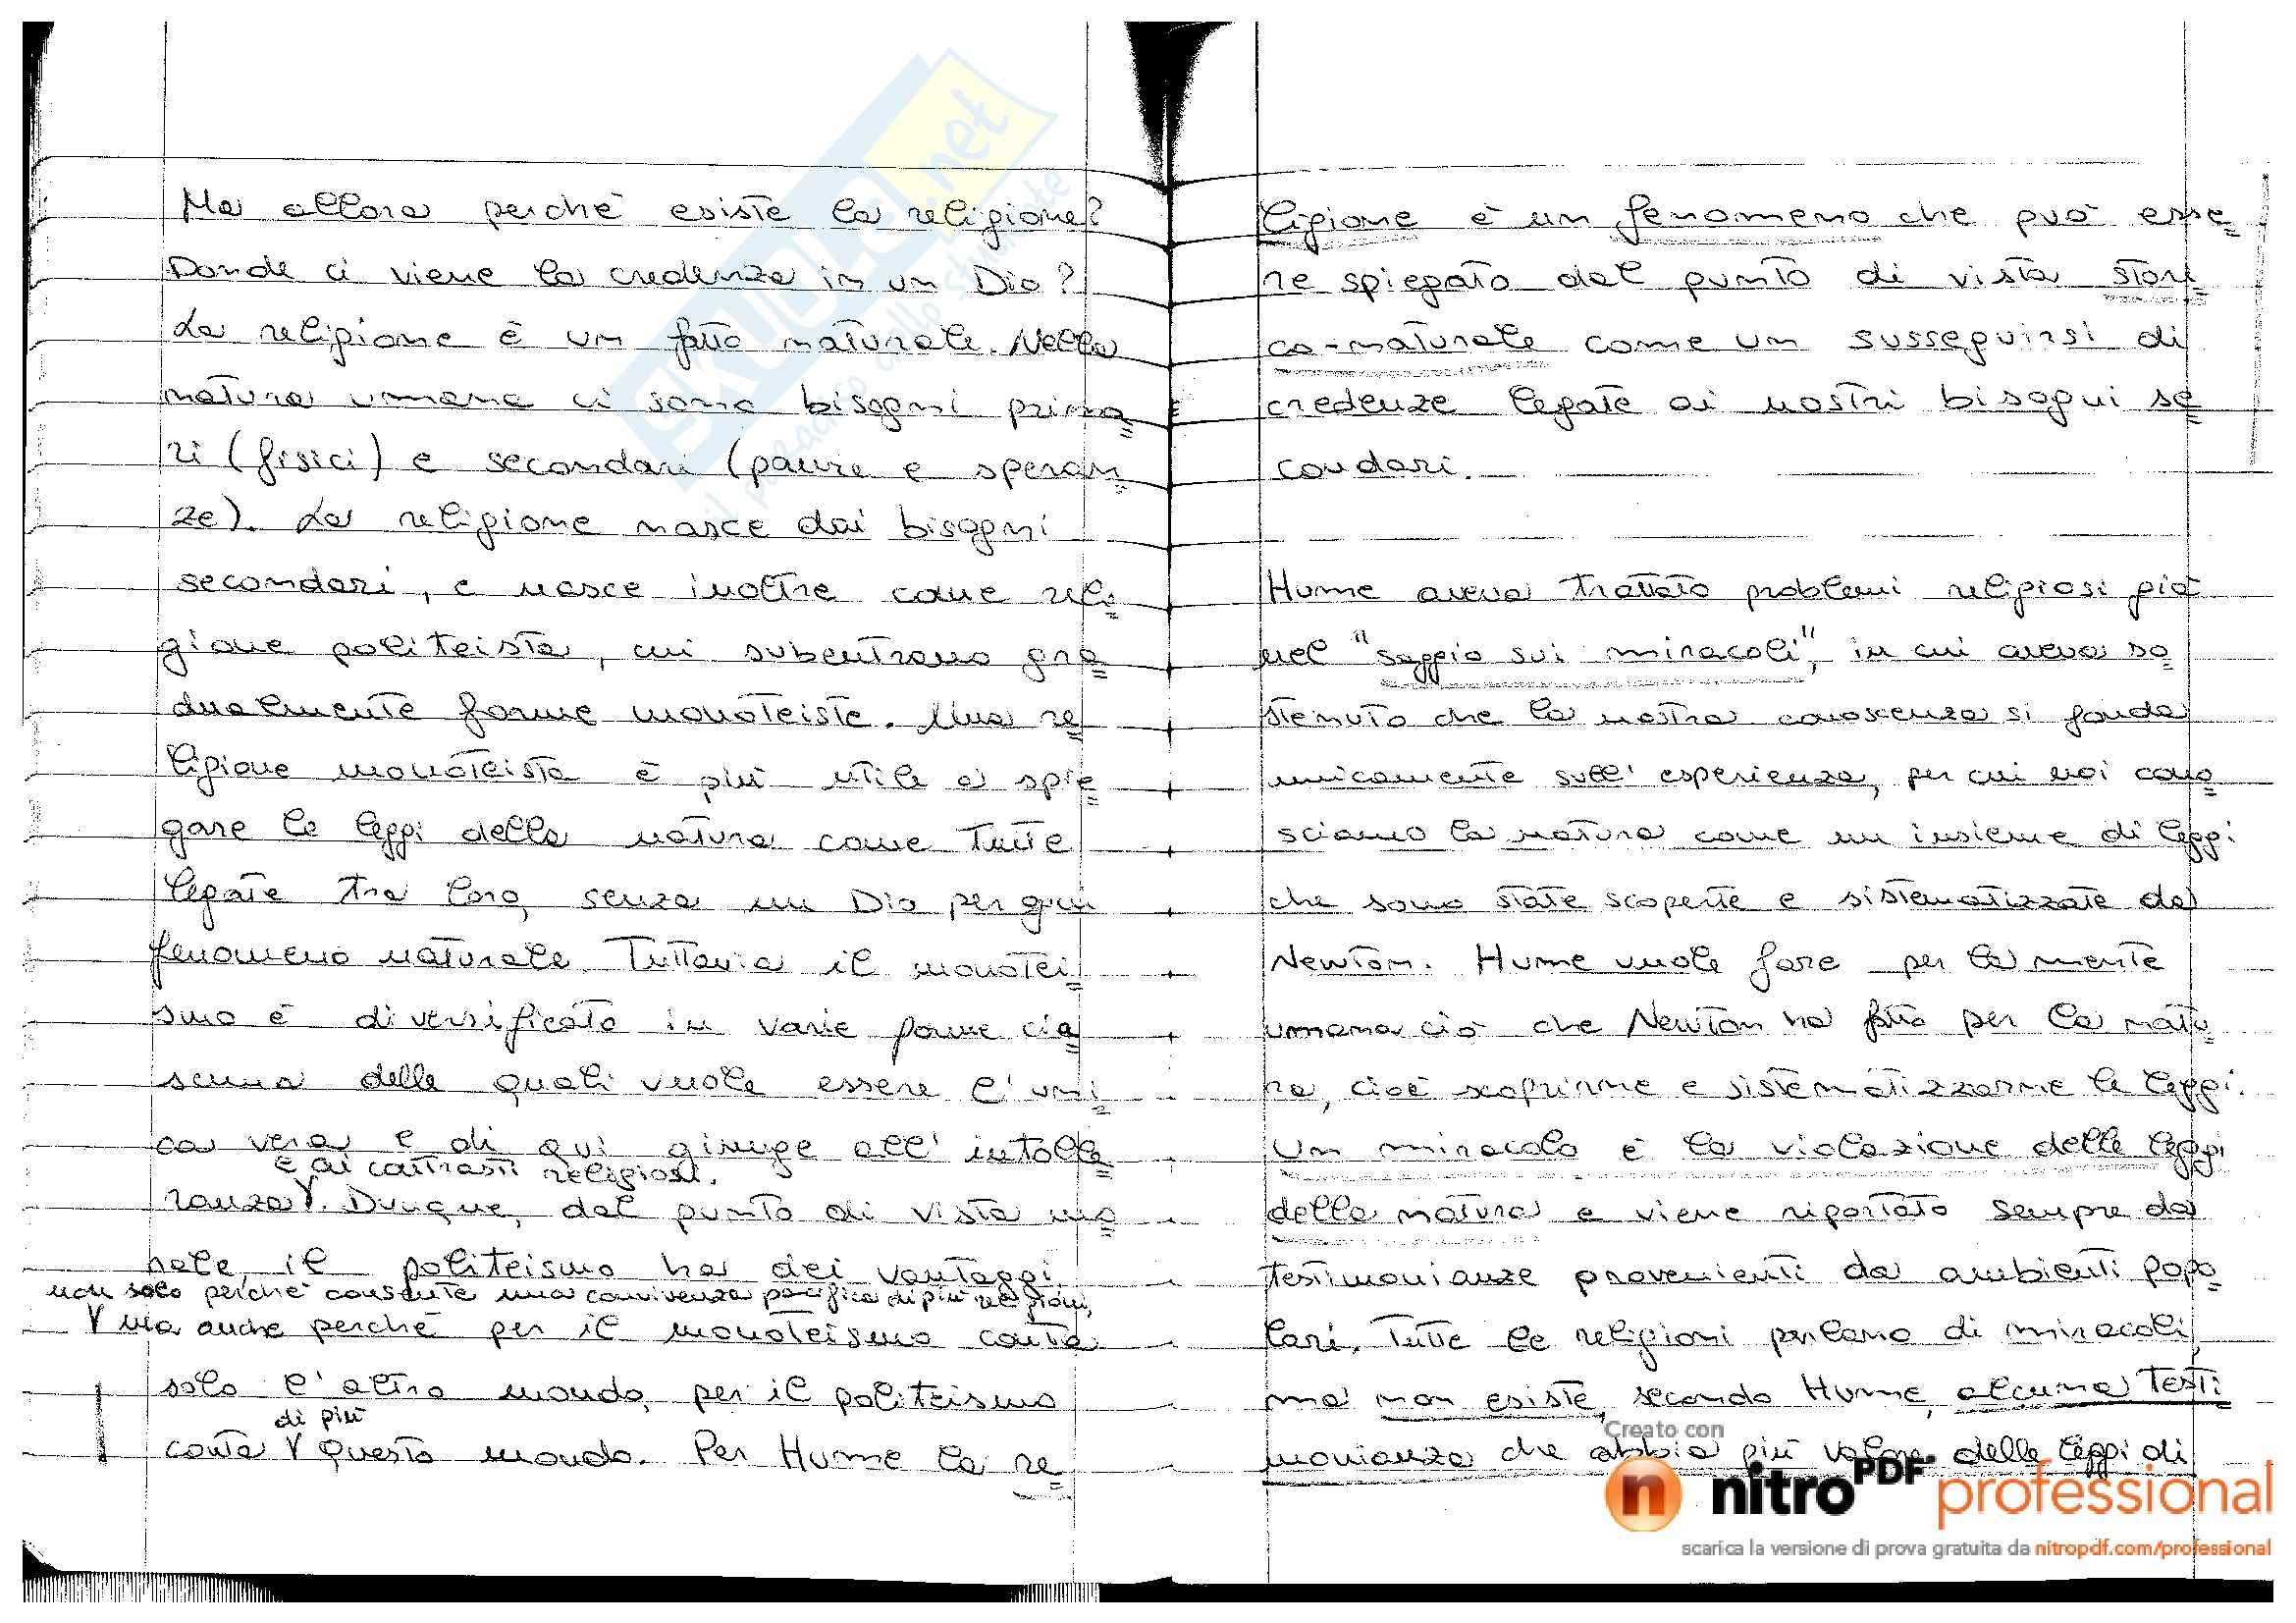 Ma allora perchè esiste la religione?
Donde ci viene la credenza in un Dio?
La religione è un fatto naturale. Nella
natura umana ci sono bisogni prima=
ri (fisici) e secondari (paure e speran=
ze). La religione nasce dai bisogni
secondari, e nasce inoltre come reli=
gione politeista, cui subentrano gra=
dualmente forme monoteiste. Una re=
ligione monoteista è più utile a spie=
gare le leggi della natura come tutte
legate tra loro, senza un Dio per ogni
fenomeno naturale. Tuttavia il monotei=
smo è diversificato in varie forme cia=
scuna delle quali vuole essere l'uni=
ca vera e di qui giunge all'intolle=
e ai contrasti religiosi.
ranza V. Dunque, dal punto di vista mo=
rale, il politeismo ha dei vantaggi
non solo perchè consente una convivenza pacifica di più religioni,
V ma anche perchè per il monoteismo conta
solo l'altro mondo, per il politeismo
di più
conta V questo mondo. Per Hume la re=
ligione è un fenomeno che può esse=
re spiegato dal punto di vista stori=
co-naturale come un susseguirsi di
credenze legate ai nostri bisogni se=
condari.
Hume aveva trattato problemi religiosi già
nel "saggio sui miracoli", in cui aveva so=
stenuto che la nostra conoscenza si fonda
unicamente sull'esperienza, per cui noi cono=
sciamo la natura come un insieme di leggi
che sono state scoperte e sistematizzate da
Newton. Hume vuole fare per la mente
umana ciò che Newton ha fatto per la natu=
ra, cioè scoprirne e sistematizzarne le leggi.
Un miracolo è la violazione delle leggi
della natura e viene riportato sempre da
testimonianze provenienti da ambienti popo=
lari. Tutte le religioni parlano di miracoli,
ma non esiste, secondo Hume, alcuna testi=
monianza che abbia più valore delle leggi di
SKUOLA.net
il paradiso dello studente
Creato con
nitro PDF professional
scarica la versione di prova gratuita da nitropdf.com/professional